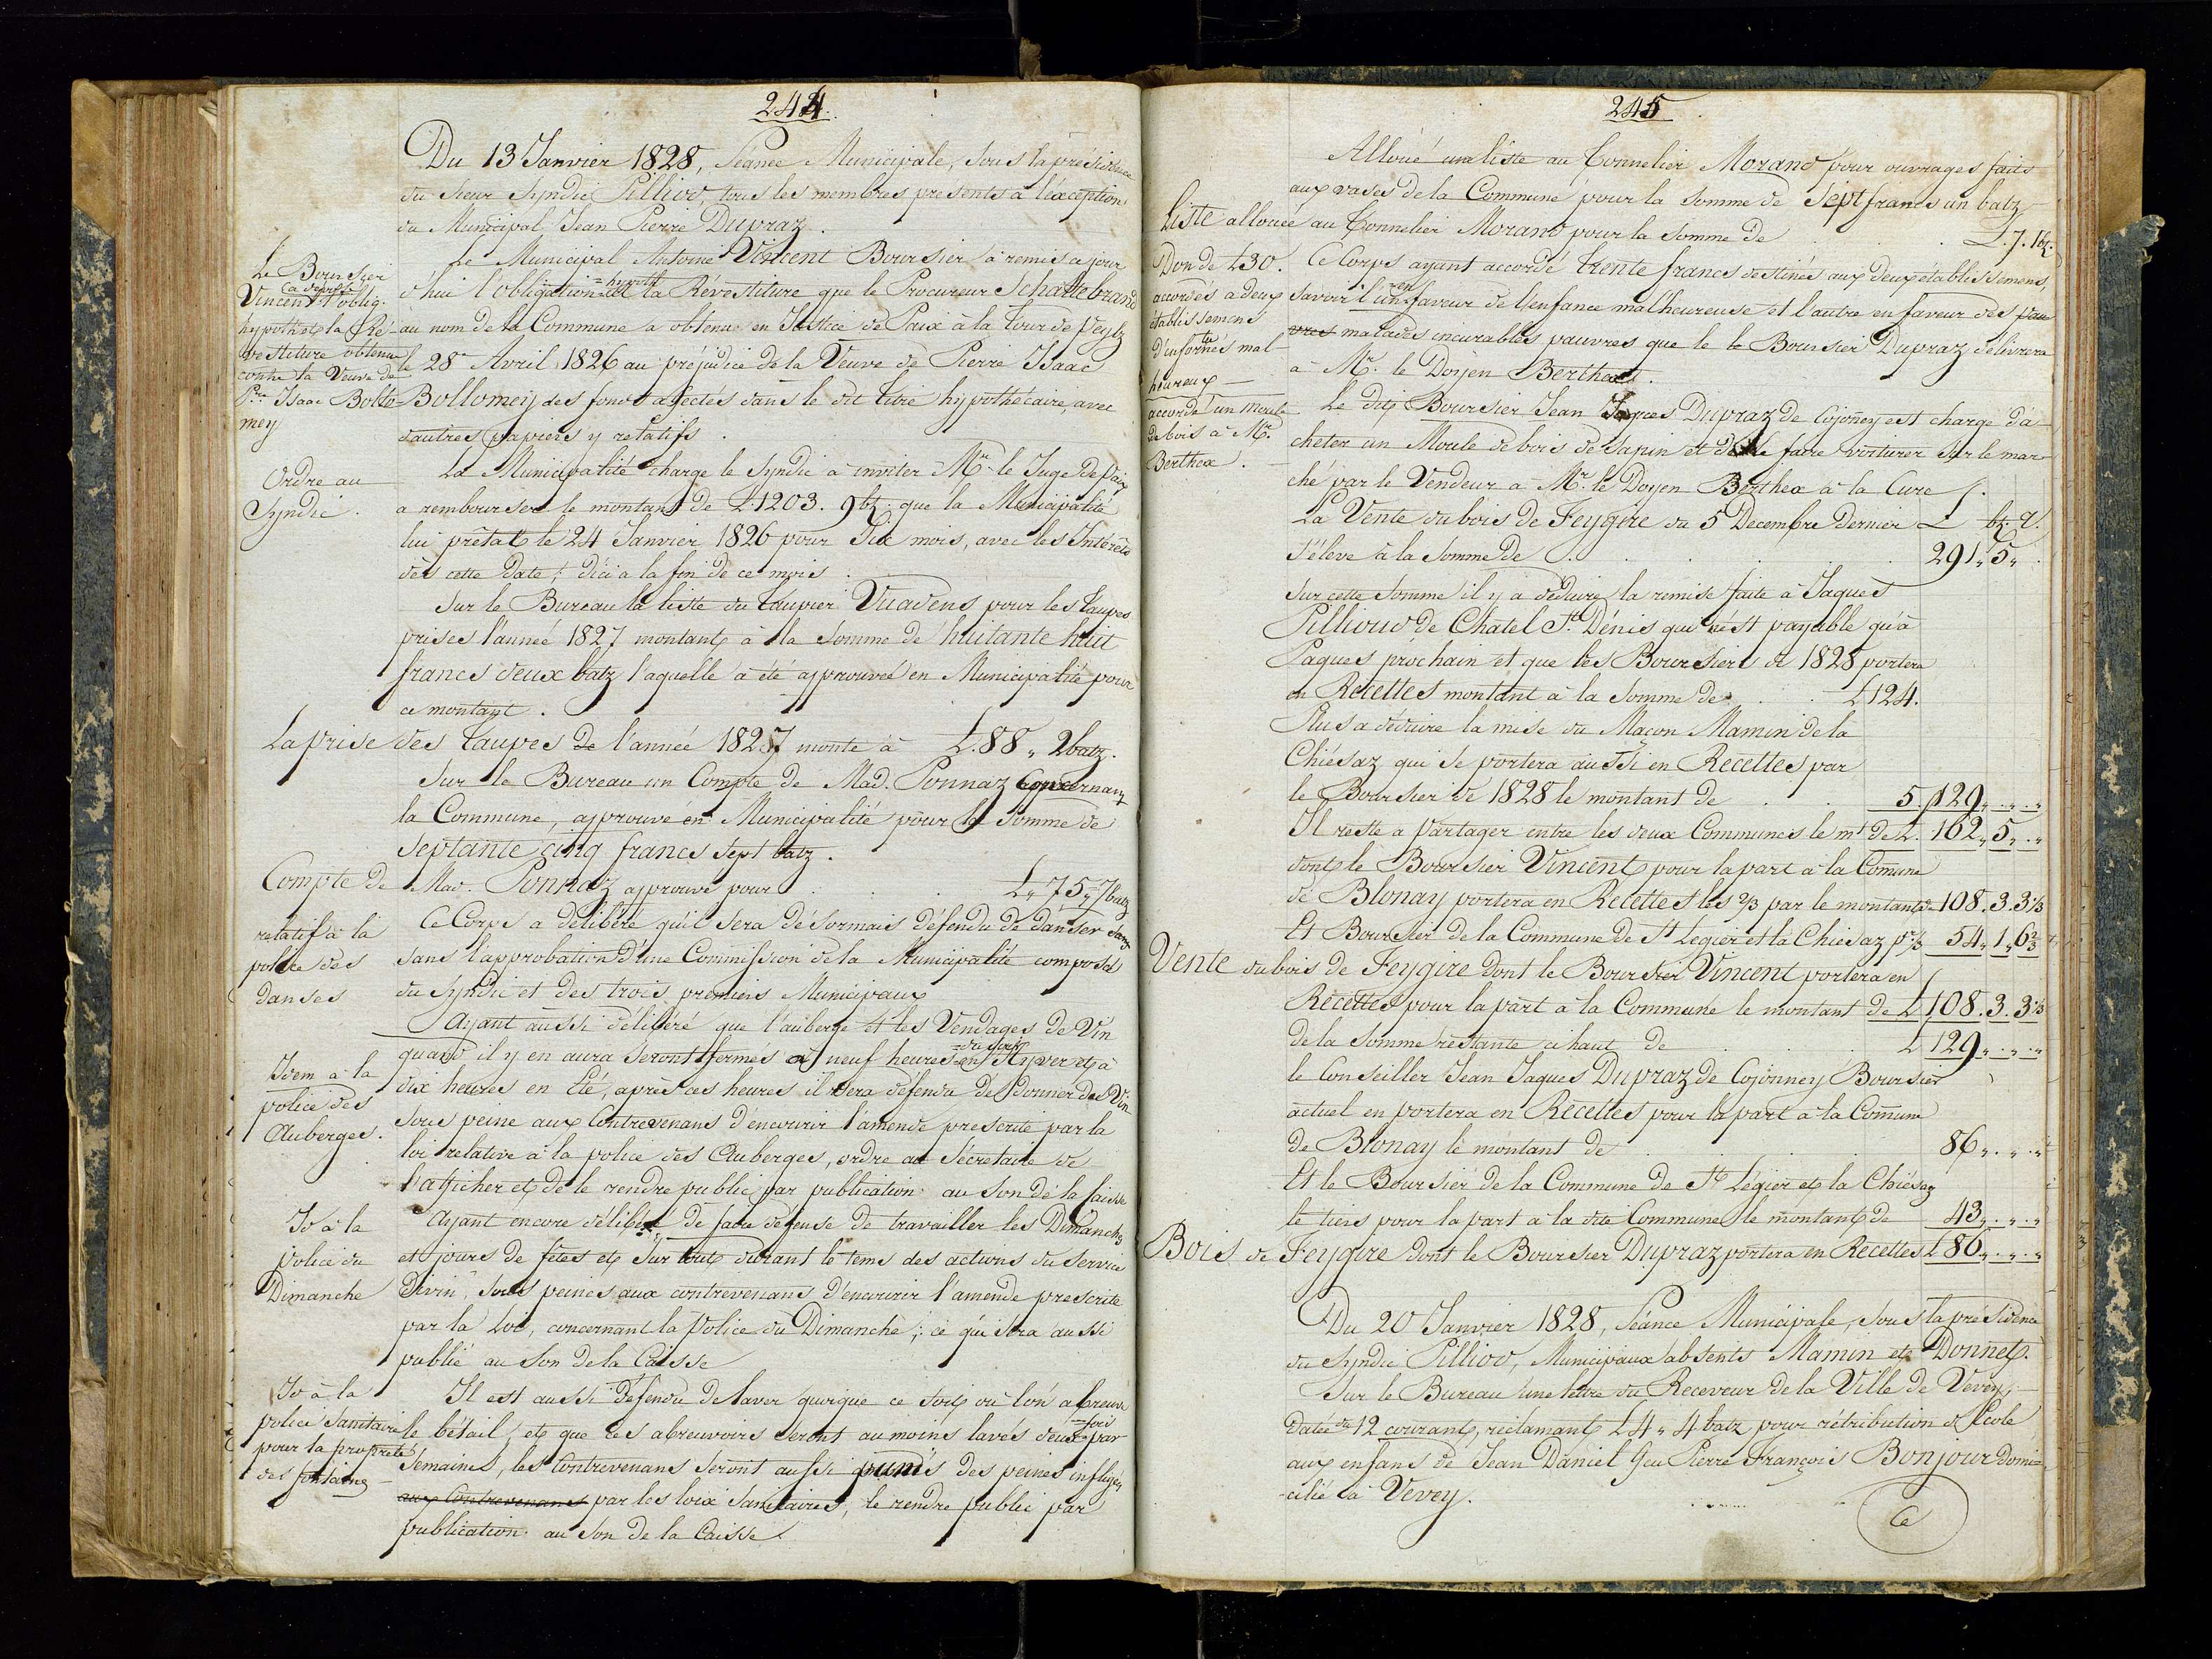 244.
Du 13 Janvier 1828, Séance Municipale, sous la présidence
du Sieur Syndic Pilliod, tous les membres presents à l'éxception
du Municipal Jean Pierre Dupraz.
Le Boursier
Vincent a déposé l'oblig.
hypoth et la Ré-
vestiture obtenue
contre la Veuve de
Pre. Isaac Bollo-
mey
Le Municipal Antoine Vincent Boursier a remis ce jour
d'hui l'obligation =hypoth et la Révestiture que le Procureur Schaltebrand
au nom de la Commune a obtenu en Justice de Paix à la Tour de Peylz
le 28e Avril 1826 au préjudice de la Veuve de Pierre Isaac
Bollomey des fonds affectés dans le dit titre hypothécaire, avec
d'autres papiers y relatifs.
Ordre au
Syndic.
La Municipalité charge le Syndic à inviter Mr. le Juge de Paix
a rembourser le montant de L. 1203. 9 bz. que la Municipalité
lui prétat le 24 Janvier 1826 pour Six mois, avec les Intérêts
dès cette date; d'ici a la fin de ce mois.
Sur le Bureau la liste du Taupier Vuadens pour les Taupes
prises l'année 1827 montant à la somme de huitante huit
francs deux batz laquelle a été approuvée en Municipalité pour
ce montant.
La prise des Taupes de l'année 1827 monte à L. 88 „ 2 batz.
Sur le Bureau un Compte de Mad. Ponnaz Concernant
la Commune, approuvé en Municipalité pour la Somme de
Septante cinq francs sept batz.
Compte de Mad. Ponnaz approuvé pour . . . L„ 75„ 7 batz
relatif à la
police des
danses
Ce Corps a délibéré qu'il sera désormais défendu de danser sans
sans l'approbation d'une Commission de la Municipalité composée
du Syndic et des trois premiers Municipaux
Idem à la
police des
Auberges.
Ayant aussi délibéré que l'auberge et les Vendages de Vin
quand il y en aura seront fermés à neuf heures =du soir en Hyver et à
dix heures en Eté, après ces heures il sera défendu de donner du Vin
sous peine aux Contrevenans d'encourir l'amende prescrite par la
loi relative à la police des Auberges, ordre au Sécretaire de
l'afficher et de le rendre public par publication au son de la Caisse
Id à la
police du
Dimanche
Ayant encore délibéré de faire défense de travailler les Dimanches
et jours de fêtes et sur tout durant le tems des actions du service
Divin, sous peines aux contrevenans d'encourir l'amende prescrite
par la Loi, concernant la Police du Dimanche; ce qui sera aussi
publié au Son de la Caisse
Id à la
police Sanitaire
pour la propreté
des fontaines
Il est aussi défendu de laver quoique ce soit où l'on abreuve
le bétail, et que ces abreuvoirs seront au moins lavés deux =fois par
Semaines, les Contrevenans seront aussi punis des peines infligées
aux Contrevenans par les loix Sanitaires, le rendre public par
publication au Son de la Caisse
245
Alloué une liste au Tonnelier Morand pour ouvrages faits
aux vases de la Commune pour la somme de Sept francs un batz
Liste allouée au Tonnelier Morand pour la somme de . . L. 7. 1 bz.
Don de L30.
accordés a deux
établissemens
d'infortunés mal-
heureux
Ce Corps ayant accordé trente francs destinés aux deux établissemens,
savoir l'un en faveur de l'enfance malheureuse et l'autre en faveur des pau
vres malades incurables pauvres que le le Boursier Dupraz délivrera
a Mr. le Doyen Berthex.
accordé un Moule
de bois à Mr.
Berthex.
Le dit Boursier Jean Jaques Dupraz de Cojonney est chargé d'a-
cheter un Moule de bois de Sapin et de le faire voiturer sur le mar-
ché par le Vendeur a Mr. le Doyen Berthex à la Cure.
La Vente du bois de Feygire du 5 Decembre dernier L bz. r.
s'éleve à la somme de . . . 291„ 5„ .
Sur cette somme il y a déduire la remise faite à Jaques
Pillioud de Chatel St. Dénis qui n'est payable qu'à
Paques prochain et que les Boursiers de 1828 portera
en Recettes montant à la somme de . . L 124.
Plus a déduire la mise du Maçon Mamin de la
Chiésaz qui se portera aussi en Recettes par
le Boursier de 1828 le montant de . . 5. 129„ . „ . „
Il reste a partager entre les deux Communes le mt. de L. 162„ 5„ . „
dont le Boursier Vincent pour la part à la Comune
de Blonay portera en Recettes les 2/3 par le montant de 108. 3. 3 1/3
Et Boursier de la Commune de St Legier et la Chiesaz pr 1/3 54„ 1„ 6 2/3
Vente du bois de Feygire dont le Boursier Vincent portera en
Recettes pour la part à la Commune le montant de L 108. 3. 3 1/3
de la Somme réstante ci haut de . . L 129„ . „ . „
le Conseiller Jean Jaques Dupraz de Cojonney Boursier
actuel en portera en Recettes pour la part a la Comune
de Blonay le montant de . . . 86„ . „ . „
Et le Boursier de la Commune de St. Légier et la Chiésaz
le tiers pour la part à la dite Commune le montant de 43„ . „ . „
Bois de Feygire dont le Boursier Dupraz portera en Recettes L 86„ . „ . „
Du 20 Janvier 1828, Séance Municipale, sous la présidence
du Syndic Pilliod, Municipaux absents Mamin et Donnet.
Sur le Bureau une lettre du Receveur de la Ville de Vevey,
datée du 12 courant, réclamant L4 „ 4 batz pour rétribution d'Ecole
aux enfans de Jean Daniel feu Pierre François Bonjour domi-
cilié à Vevey.
Ce